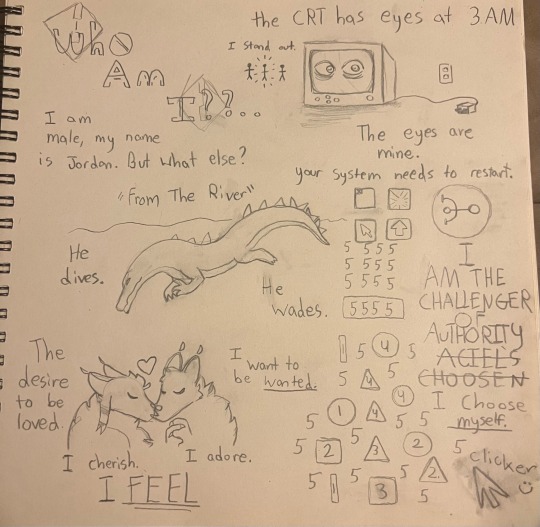 Who
Am
I??...
the CRT has eyes at 3AM
I stand out.
I am
male, my name
is Jordan. But what else?
The eyes are
mine.
your system needs to restart.
"From The River"
He
dives.
He
Wades.
5 5 5 5
5 5 5 5
5 5 5 5
5555
I
AM THE
CHALLENGER
OF
AUTHORITY
ACIELS
CHOOSEN
I Choose
myself.
The
desire
to be
loved.
I want to
be wanted.
I cherish.
I adore.
I FEEL
1 5 4 5
5 4 5
4
5 1 4 5 5
5 2 5 3 2 5
5 1 3 5 2 5
clicker